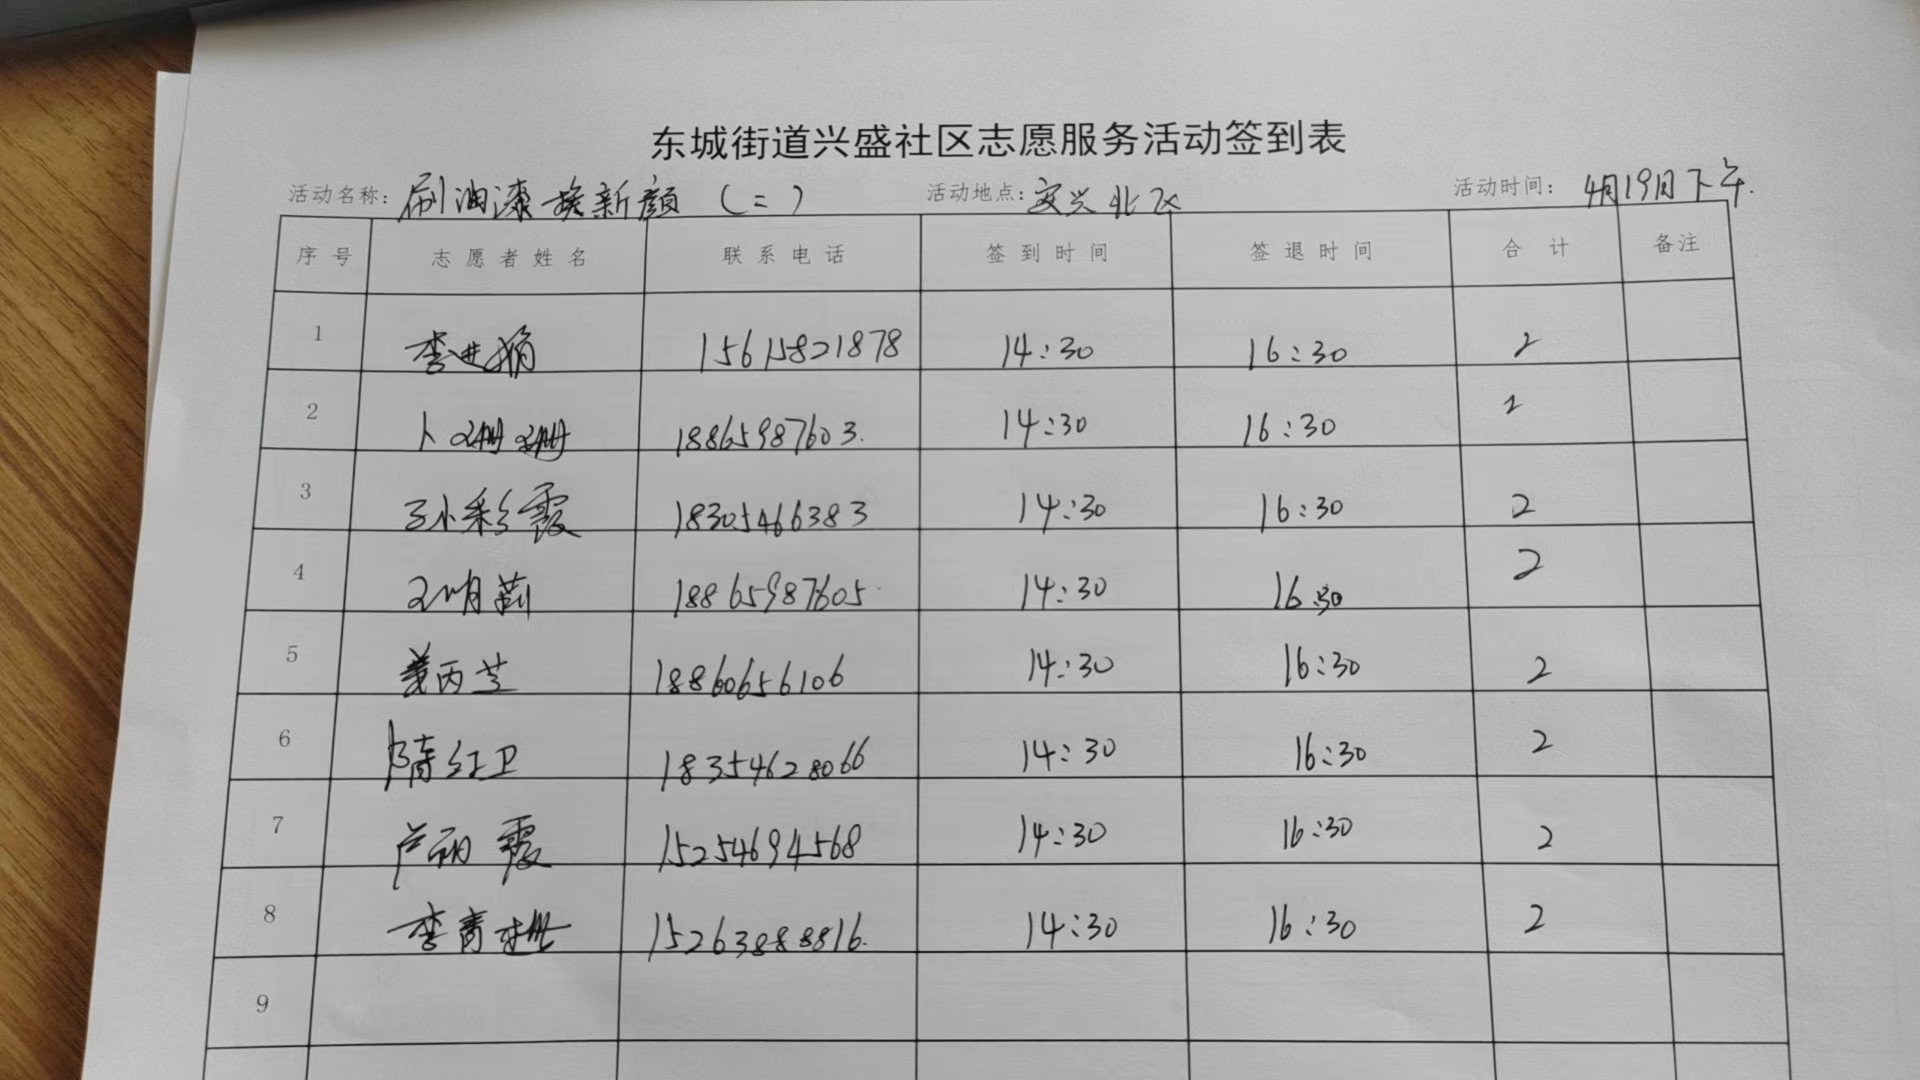 东城街道兴盛社区志愿服务活动签到表
活动名称: 刷油漆换新颜 (二) 活动地点: 安兴北区 活动时间: 4月19日下午.
序号 志愿者姓名 联系电话 签到时间 签退时间 合计 备注
1 李 娟 15615821878 14:30 16:30 2
2 卜珊珊 18865987603. 14:30 16:30 2
3 孙彩霞 18305466383 14:30 16:30 2
4 18865987605 14:30 16:30 2
5 丙芝 18860656106 14:30 16:30 2
6 隋红卫 18354628066 14:30 16:30 2
7 芦丽霞 15254694568 14:30 16:30 2
8 李青 15263888816. 14:30 16:30 2
9